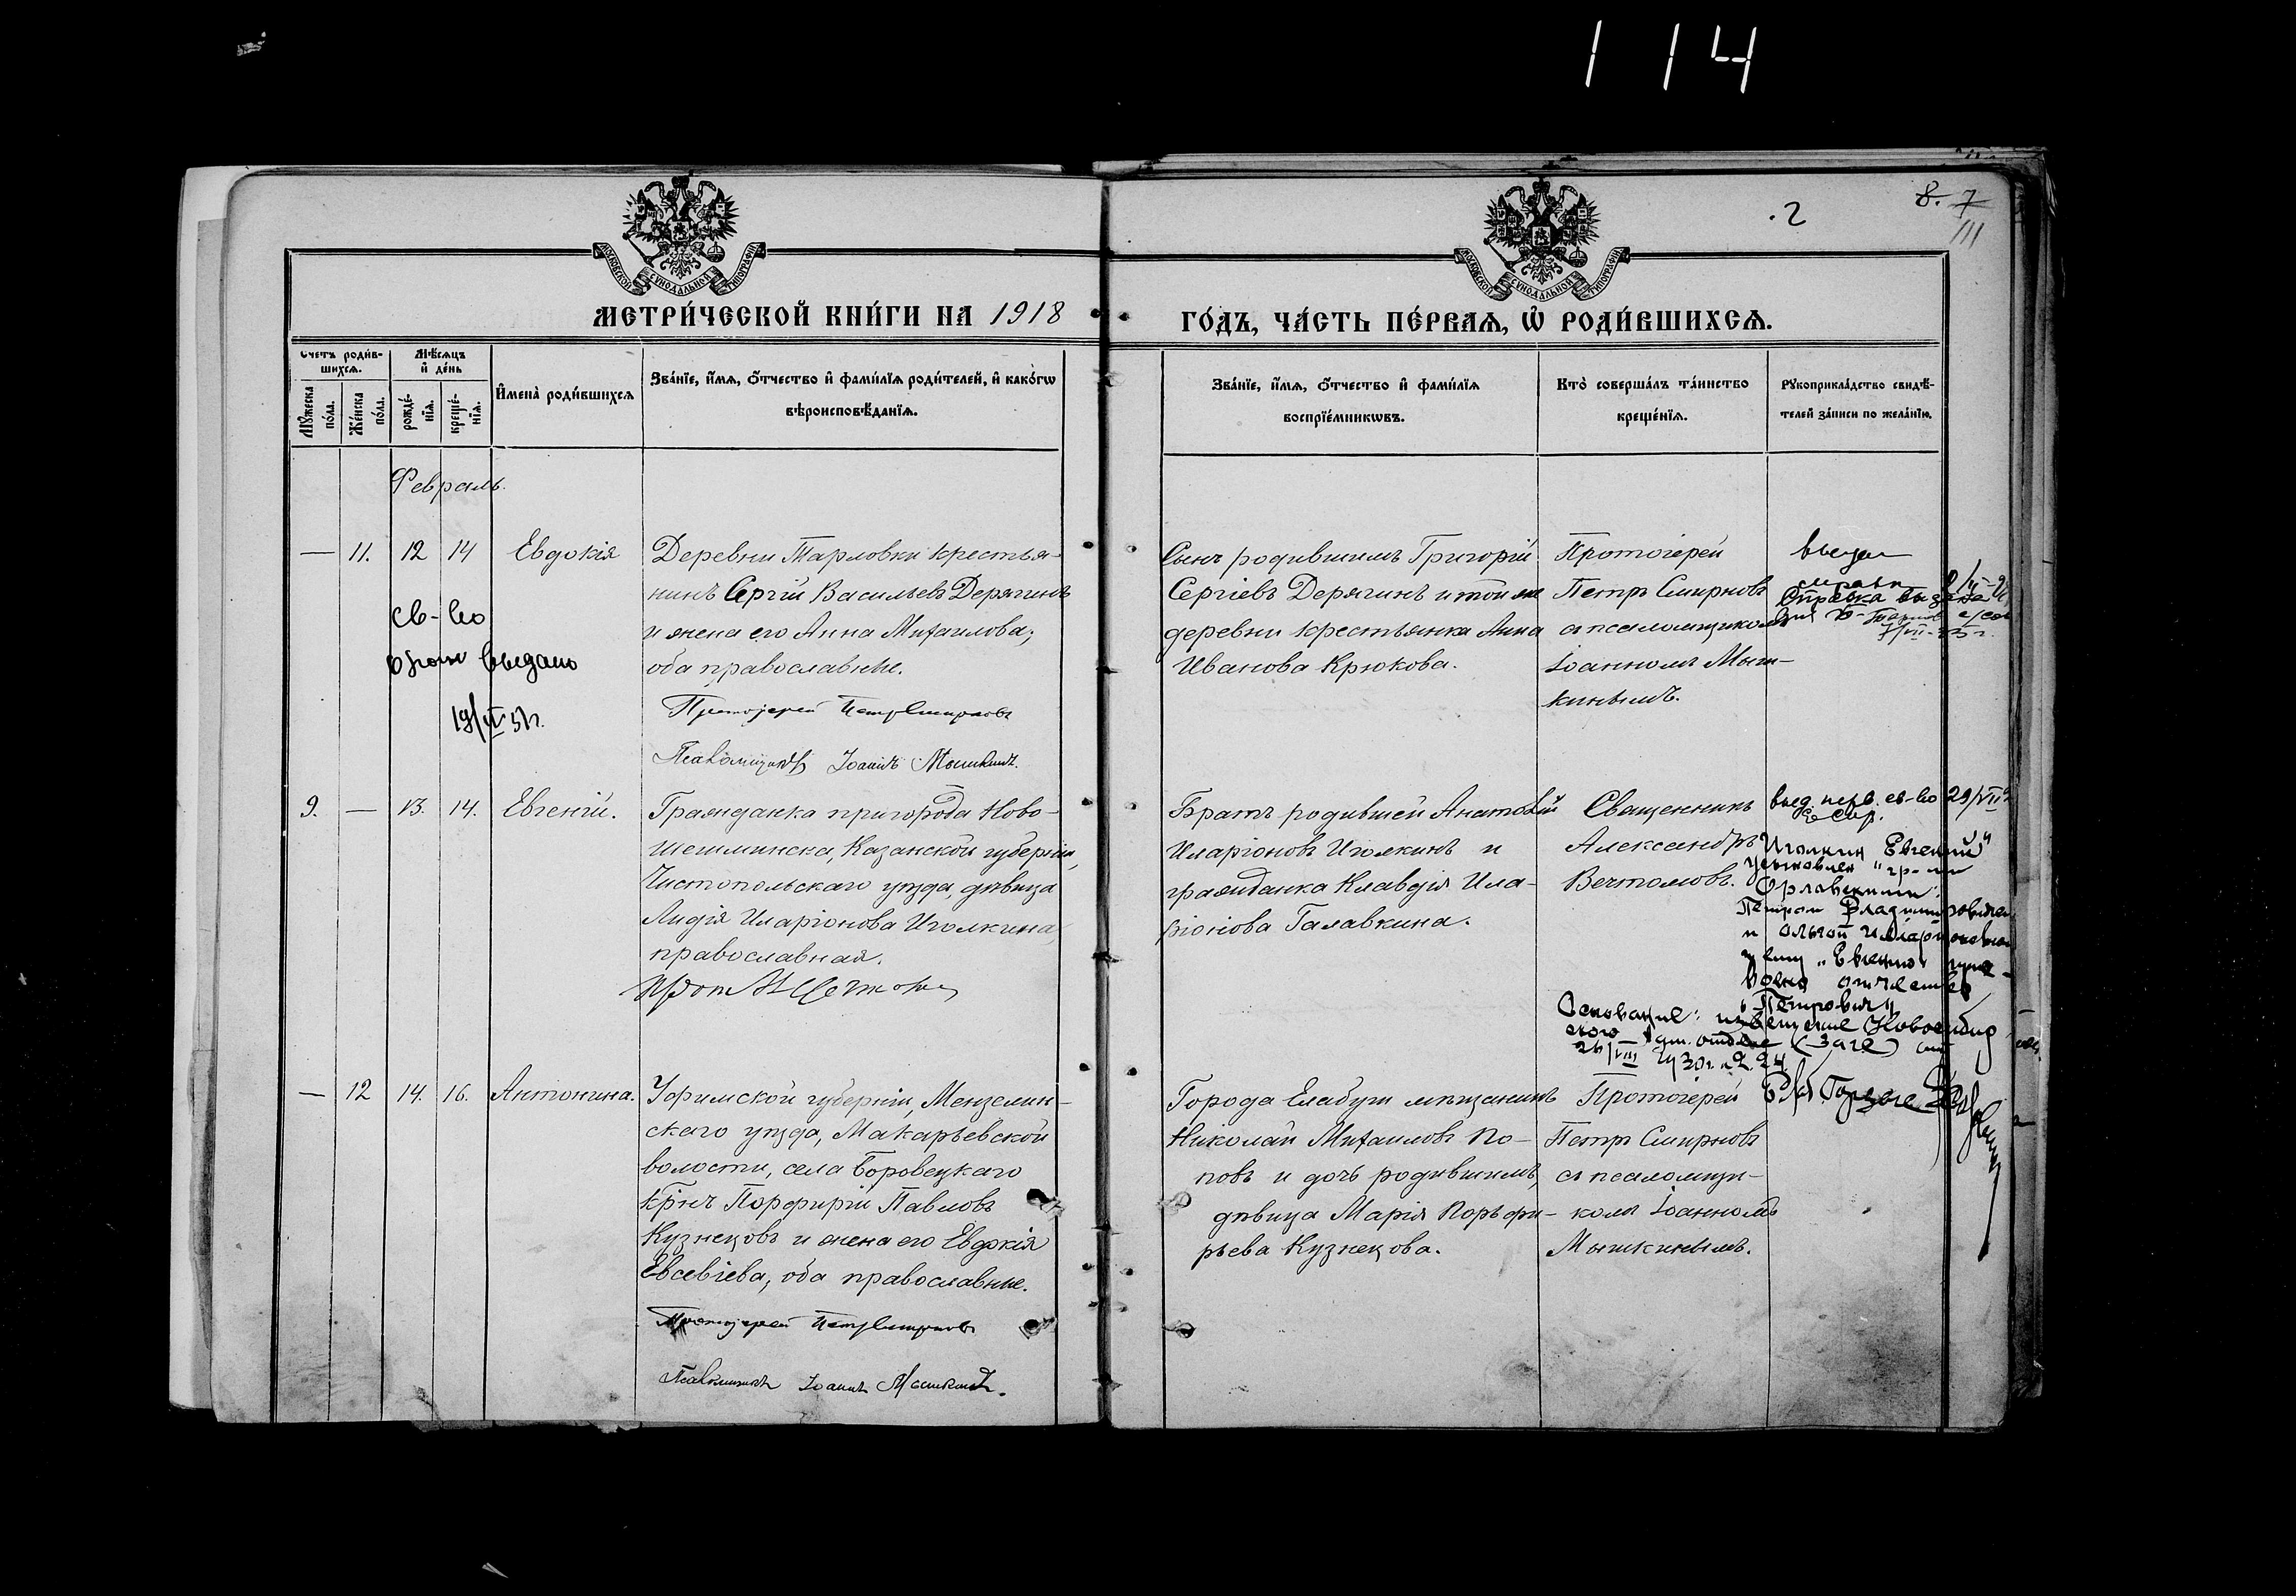 114
.2
8. 7
111
МОСКОВСКОЙ СУНОДАЛЬНОЙ ТИПОГРАФІИ
МОСКОВСКОЙ СУНОДАЛЬНОЙ ТИПОГРАФІИ
МЕТРИ́ЧЕСКОЙ КНИ́ГИ НА 1918
ГО́ДЪ, ЧА́СТЬ ПЕ́РВАѦ, Ѡ҆ РОДИ́ВШИХСѦ.
Счетъ роди́в-
шихсѧ.
Мѣ́сѧцъ
и҆ де́нь
Мꙋ́жеска
по́ла.
Же́нска
по́ла.
рожде́-
нїѧ.
креще́-
нїѧ.
И҆мена̀ роди́вшихсѧ
Зва́нїе, и҆́мѧ, ѻ҆́тчество и҆ фами́лїѧ роди́телей, и҆ како́гѡ
вѣроисповѣ́данїѧ.
Зва́нїе, и҆́мѧ, ѻ҆́тчество и҆ фами́лїѧ
воспрїе́мникѡвъ.
Кто̀ соверша́лъ та́инство
креще́нїѧ.
Рꙋкоприкла́дство свидѣ́-
телей за́писи по жела́нїю.
Февраль.
— 11. 12 14 Евдокія
Деревни Тарловки крестья-
нинъ Сергій Васильевъ Дерягинъ
и жена его Анна Михаилова;
оба православные.
Протоіерей Петръ Смирновъ
Псаломщикъ Іоаннъ Мышкинъ.
св-во
выдано
19/ 51г.
Сынъ родившимъ Григорій
Сергіевъ Дерягинъ и той же
деревни крестьянка Анна
Иванова Крюкова.
Протоіерей
Петръ Смирновъ
съ псаломщикомъ
Іоанномъ Мыш-
кинымъ.
Справка выдана
9. — 13. 14. Евгеній.
Гражданка пригорода Ново-
шешминска, Казанской губерніи,
Чистопольскаго уѣзда, дѣвица
Лидія Иларіонова Иголкина,
православная.
Брать родившей Анатолій
Иларіоновъ Иголкинъ и
гражданка Клавдія Ила-
ріонова Галавкина.
Священникъ
Александръ
Вечтомовъ.
выд. перв. св-во 29/VII
Иголкин Евгений"
усыновлен "гр-ми
Орлавскими"
Петром Владимировичем
и Ольгой Илларионовной
и ему "Евгению" прис-
воено отчество
"Петрович"
Основание: извещение Новосибир
ского отдела (Загс) от
26/VIII 1930г. № 224
— 12 14. 16. Антонина.
Уфимской губерніи, Мензелин-
скаго уѣзда, Макарьевской
волости, села Боровецкаго
кр̃нъ Порфирій Павловъ
Кузнецовъ и жена его Евдокія
Евсевіева, оба православные.
Протоіерей Петръ Смирновъ
Псаломщикъ Іоаннъ Мышкинъ.
Города Елабуги мѣщанинъ
Николай Михаиловъ По-
повъ и дочь родившимъ,
дѣвица Марія Порьфи-
рьева Кузнецова.
Протоіерей
Петръ Смирновъ
съ псаломщи-
комъ Іоанномъ
Мышкинымъ.